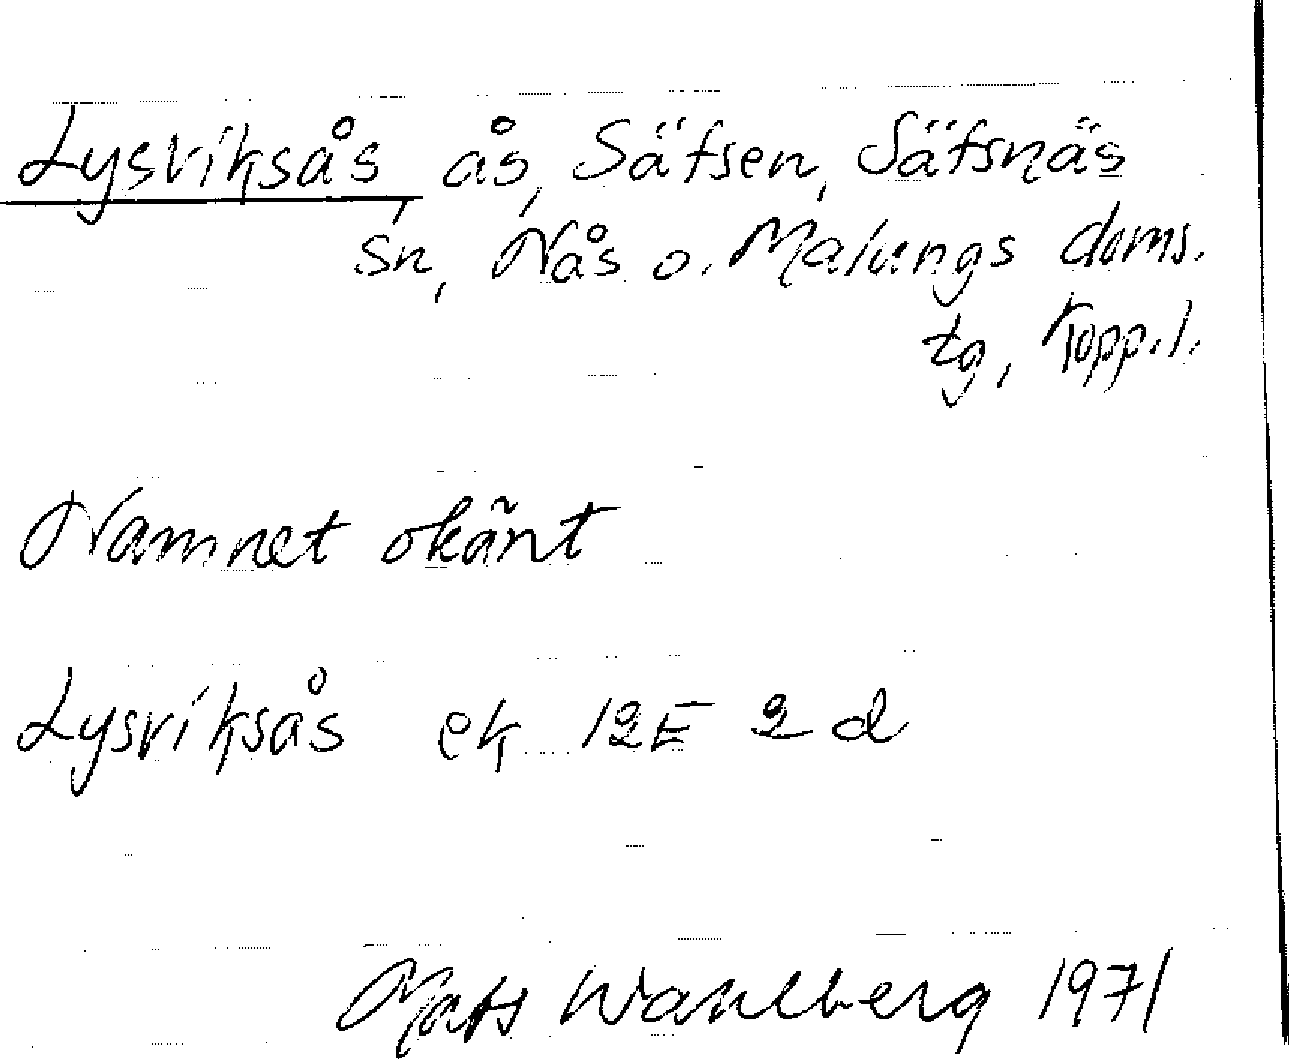 Lysviksås, ås, Säfsen, Säfsnäs
sn, Nås o. Malungs doms.
tg, Kopp.l.
Namnet okänt
Lysviksås ek 12E 2d
Mats Wahlberg 1971